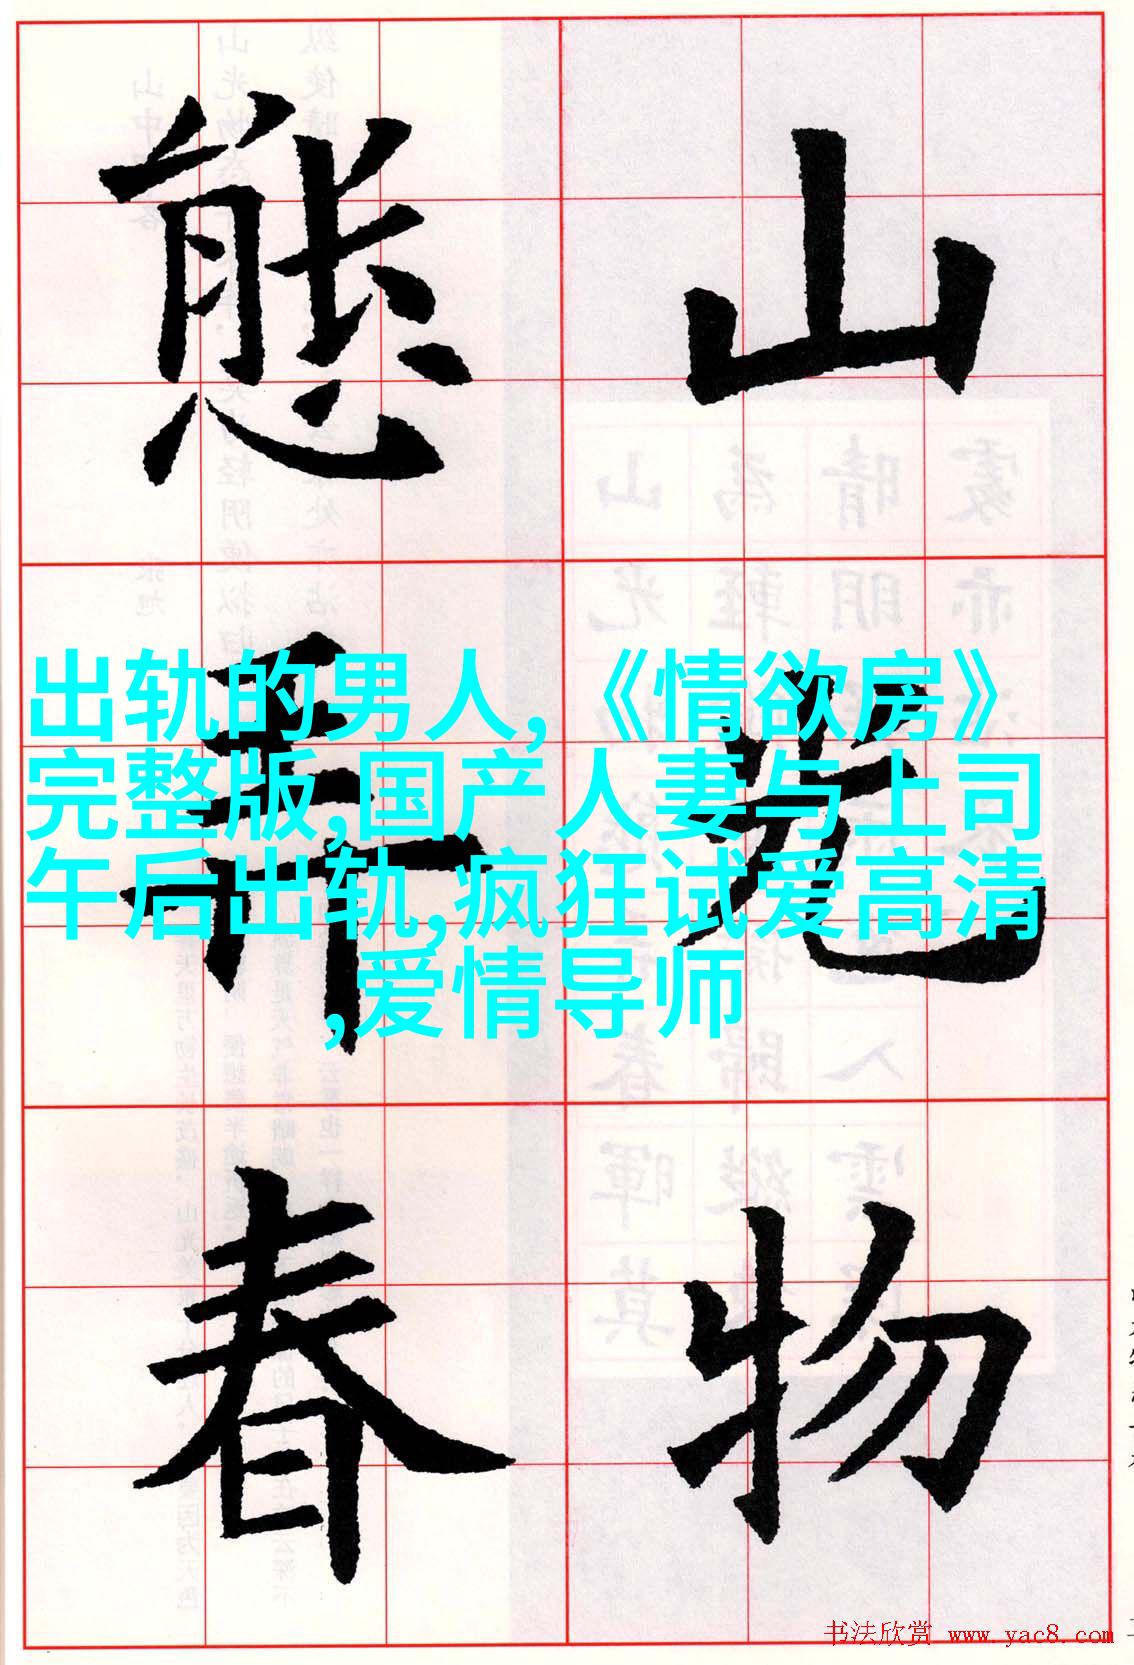 山光物
態弄春
出轨的男人,《情欲房》
完整版,国产人妻与上司
午后出轨,疯狂试爱高清
,爱情导师
书法欣赏 www.yac8.com